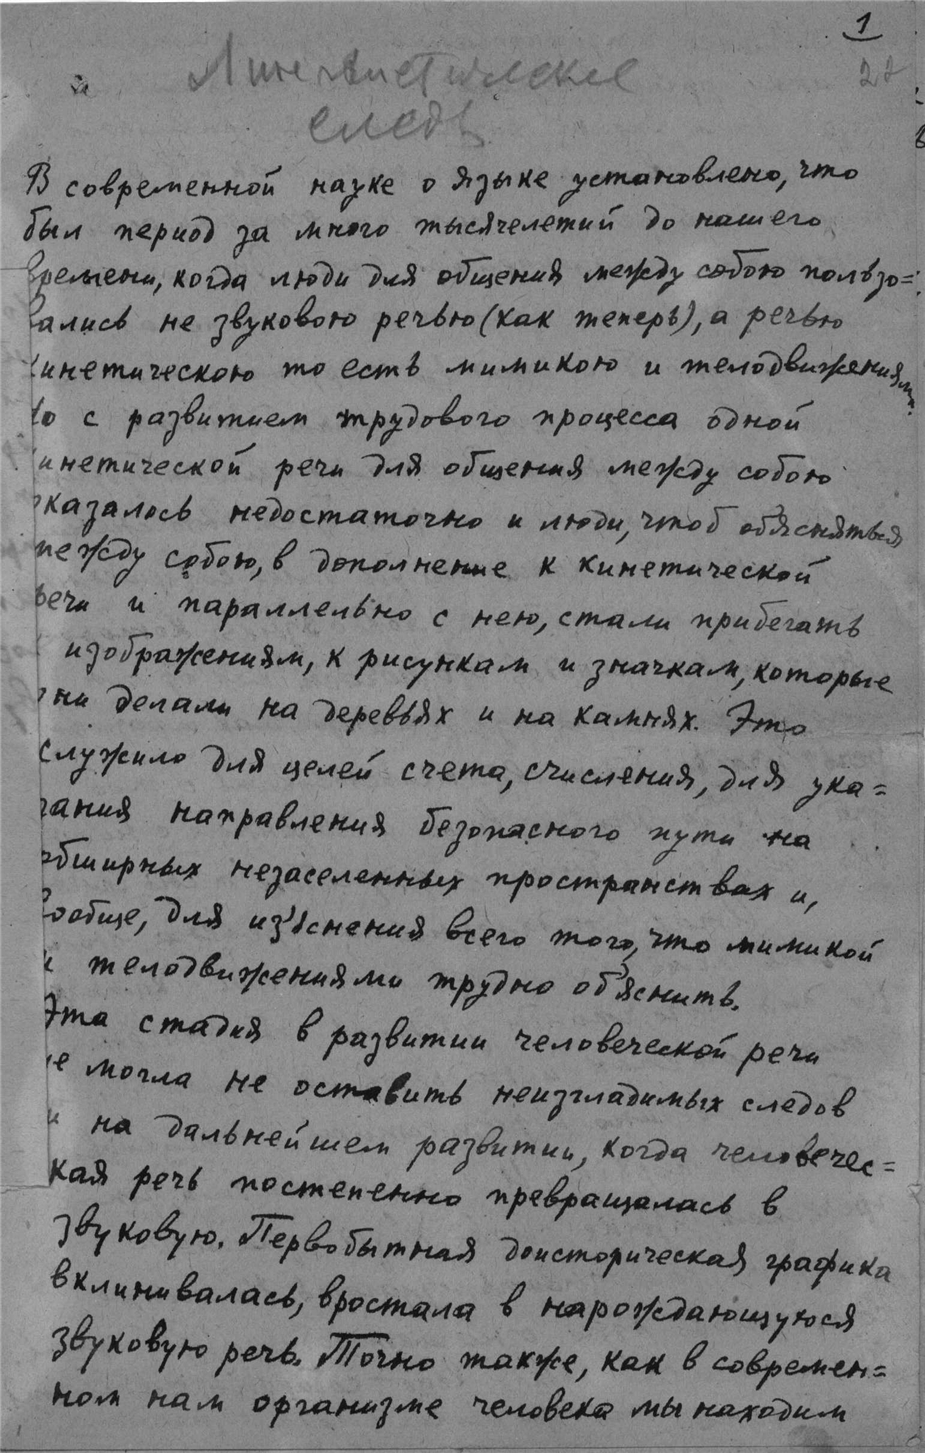 1
22
Лингвистические
следы
В современной науке о языке установлено, что
был период за много тысячелетий до нашего
времени, когда люди для общения между собою пользо=
вались не звуковою речью (как теперь), а речью
кинетическою то есть мимикою и телодвижениями.
Но с развитием трудового процесса одной
кинетической речи для общения между собою
оказалось недостаточно и люди, чтоб об'ясняться
между собою, в дополнение к кинетической
речи и параллельно с нею, стали прибегать
к изображениям, к рисункам и значкам, которые
они делали на деревьях и на камнях. Это
служило для целей счета, счисления, для ука=
зания направления безопасного пути на
обширных незаселенных пространствах и,
вообще, для из'яснения всего того, что мимикой
и телодвижениями трудно об'яснить.
Эта стадия в развитии человеческой речи
не могла не оставить неизгладимых следов
и на дальнейшем развитии, когда человечес=
кая речь постепенно превращалась в
звуковую. Первобытная доисторическая графика
вклинивалась, вростала в нарождающуюся
звуковую речь. Точно также, как в современ=
ном нам организме человека мы находим